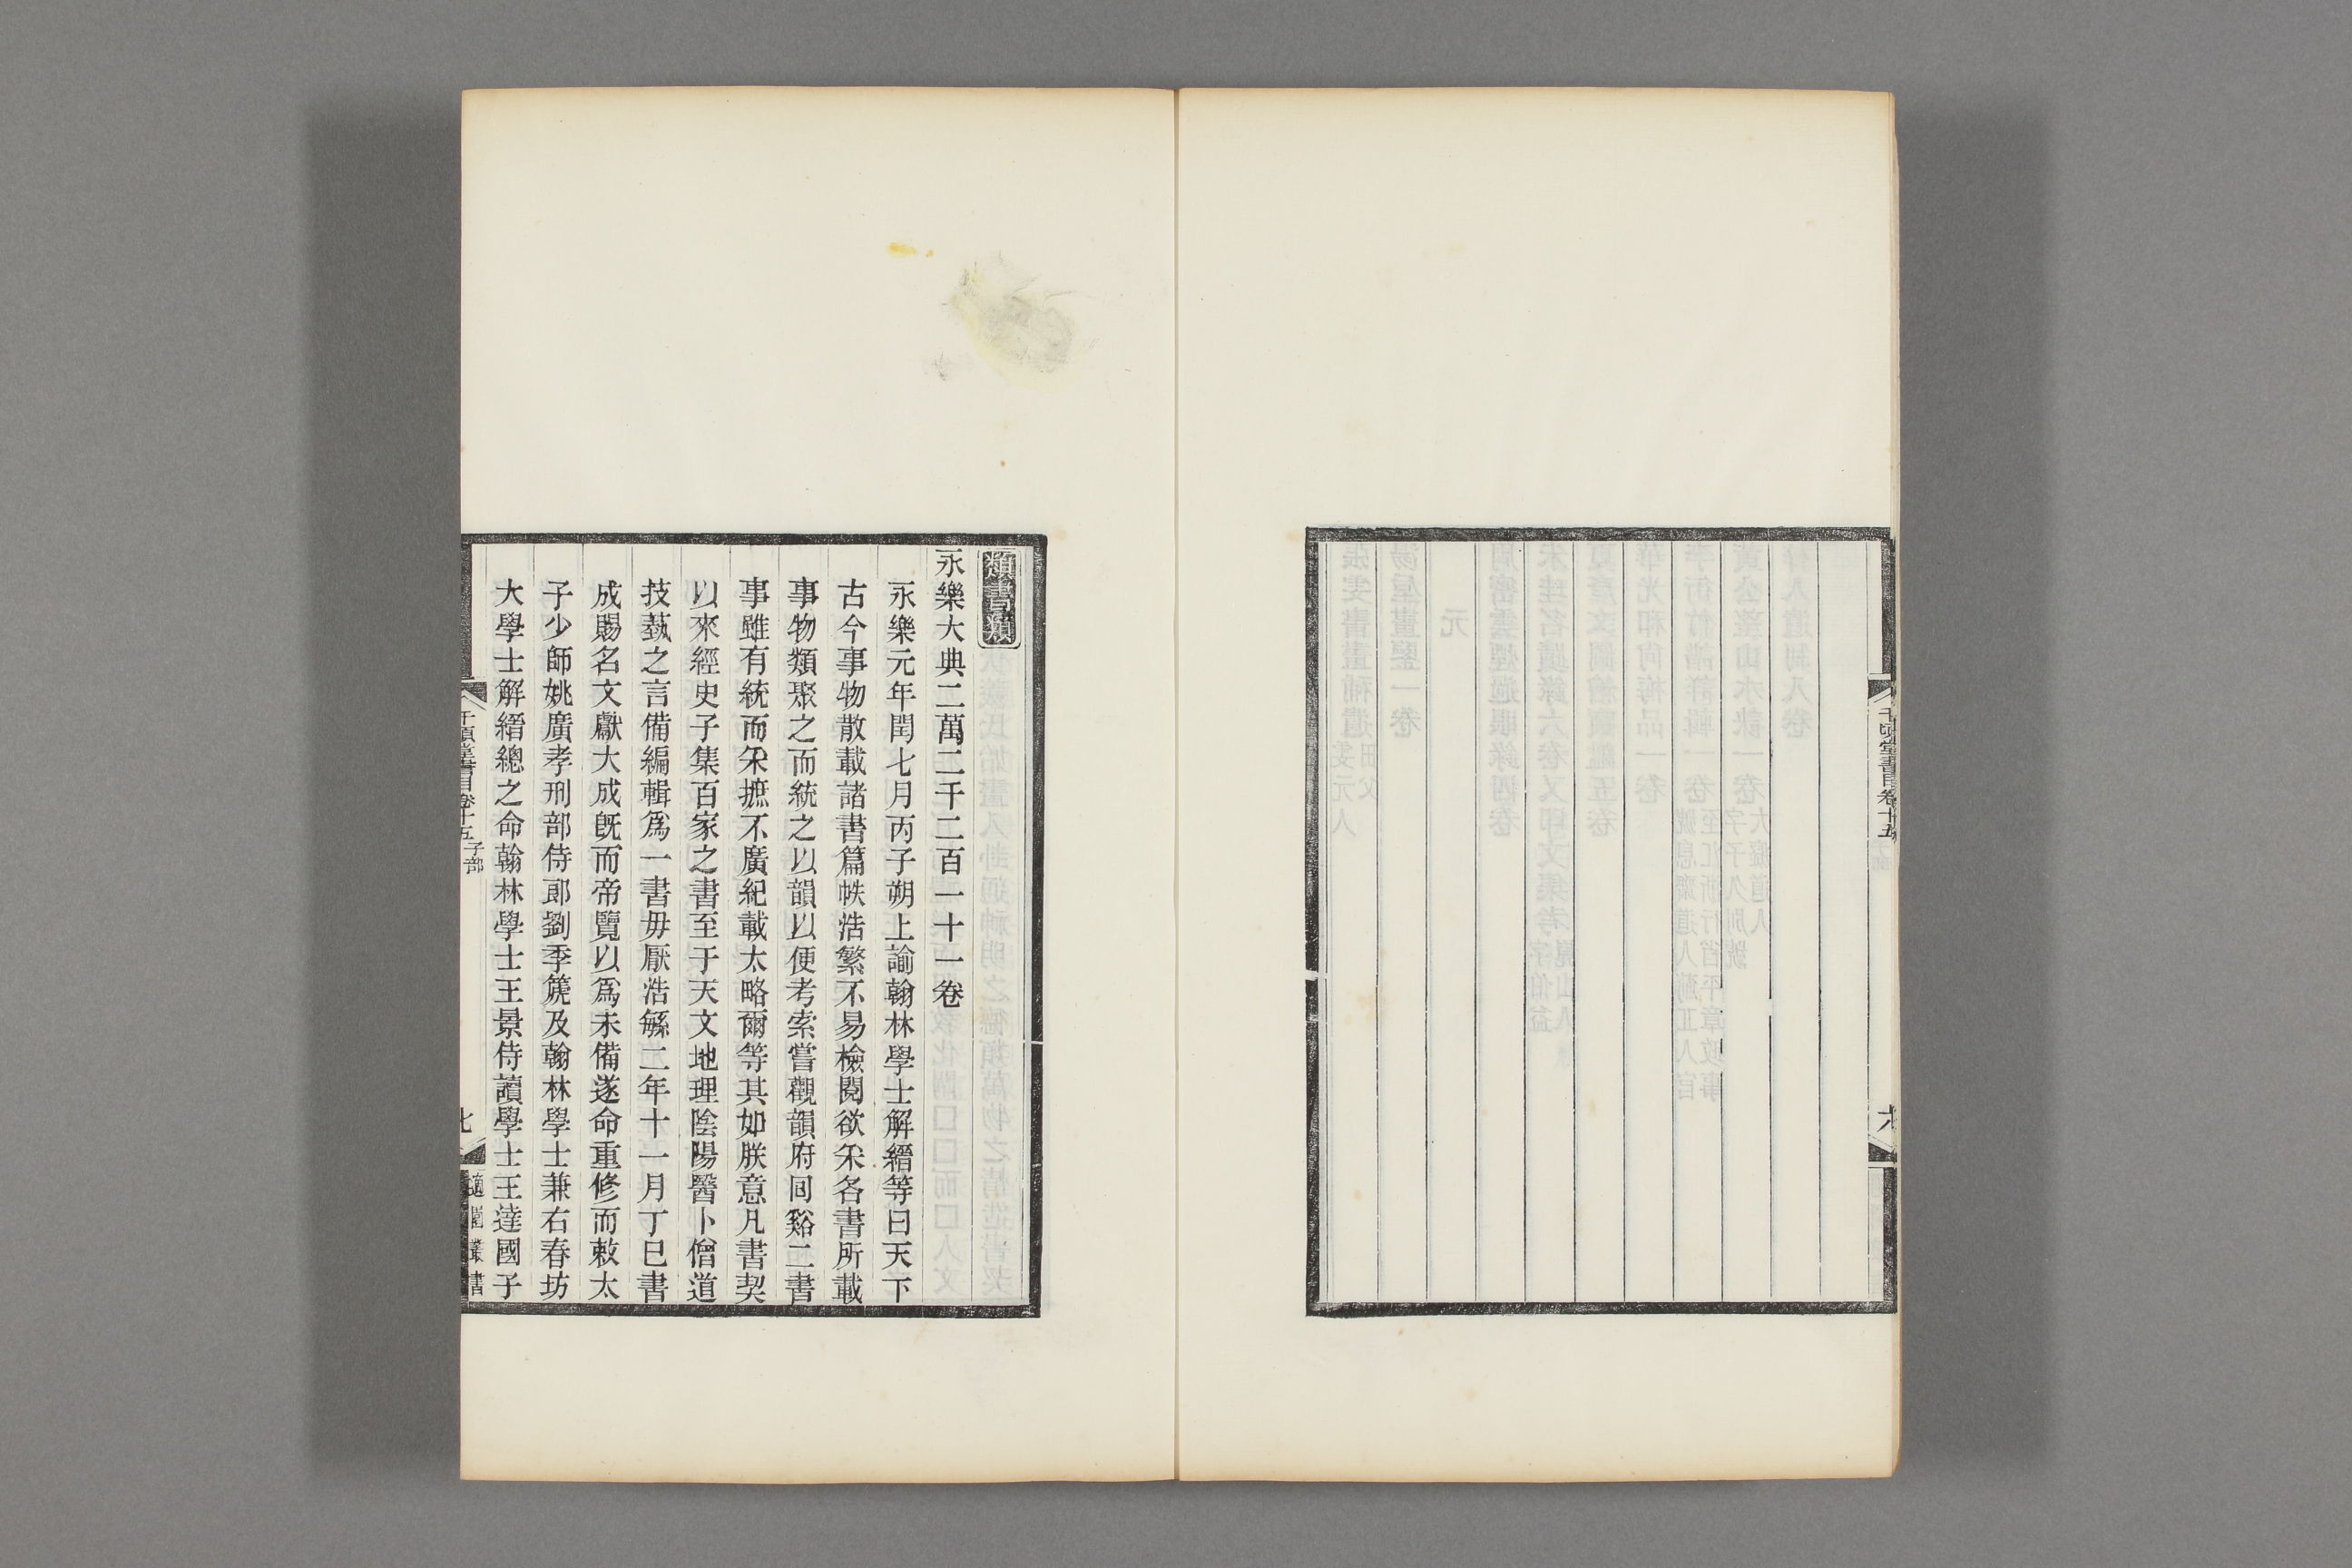 千頃堂書目卷十五
六
類書類
永樂大典二萬二千二百一十一卷
永樂元年閏七月丙子朔上諭翰林學士解縉等曰天下
古今事物散載諸書篇帙浩繁不易檢閱欲采各書所載
事物類聚之而統之以韻以便考索嘗觀韻府囘谿二書
事雖有統而采摭不廣紀載太略爾等其如朕意凡書契
以來經史子集百家之書至于天文地理陰陽醫卜僧道
技蓺之言備編輯爲一書毋厭浩緐二年十一月丁巳書
成賜名文獻大成旣而帝覽以爲未備遂命重修而敕太
子少師姚廣孝刑部侍郎劉季箎及翰林學士兼右春坊
大學士解縉總之命翰林學士王景侍讀學士王達國子
千頃堂書目卷十五 子部
七
適園叢書